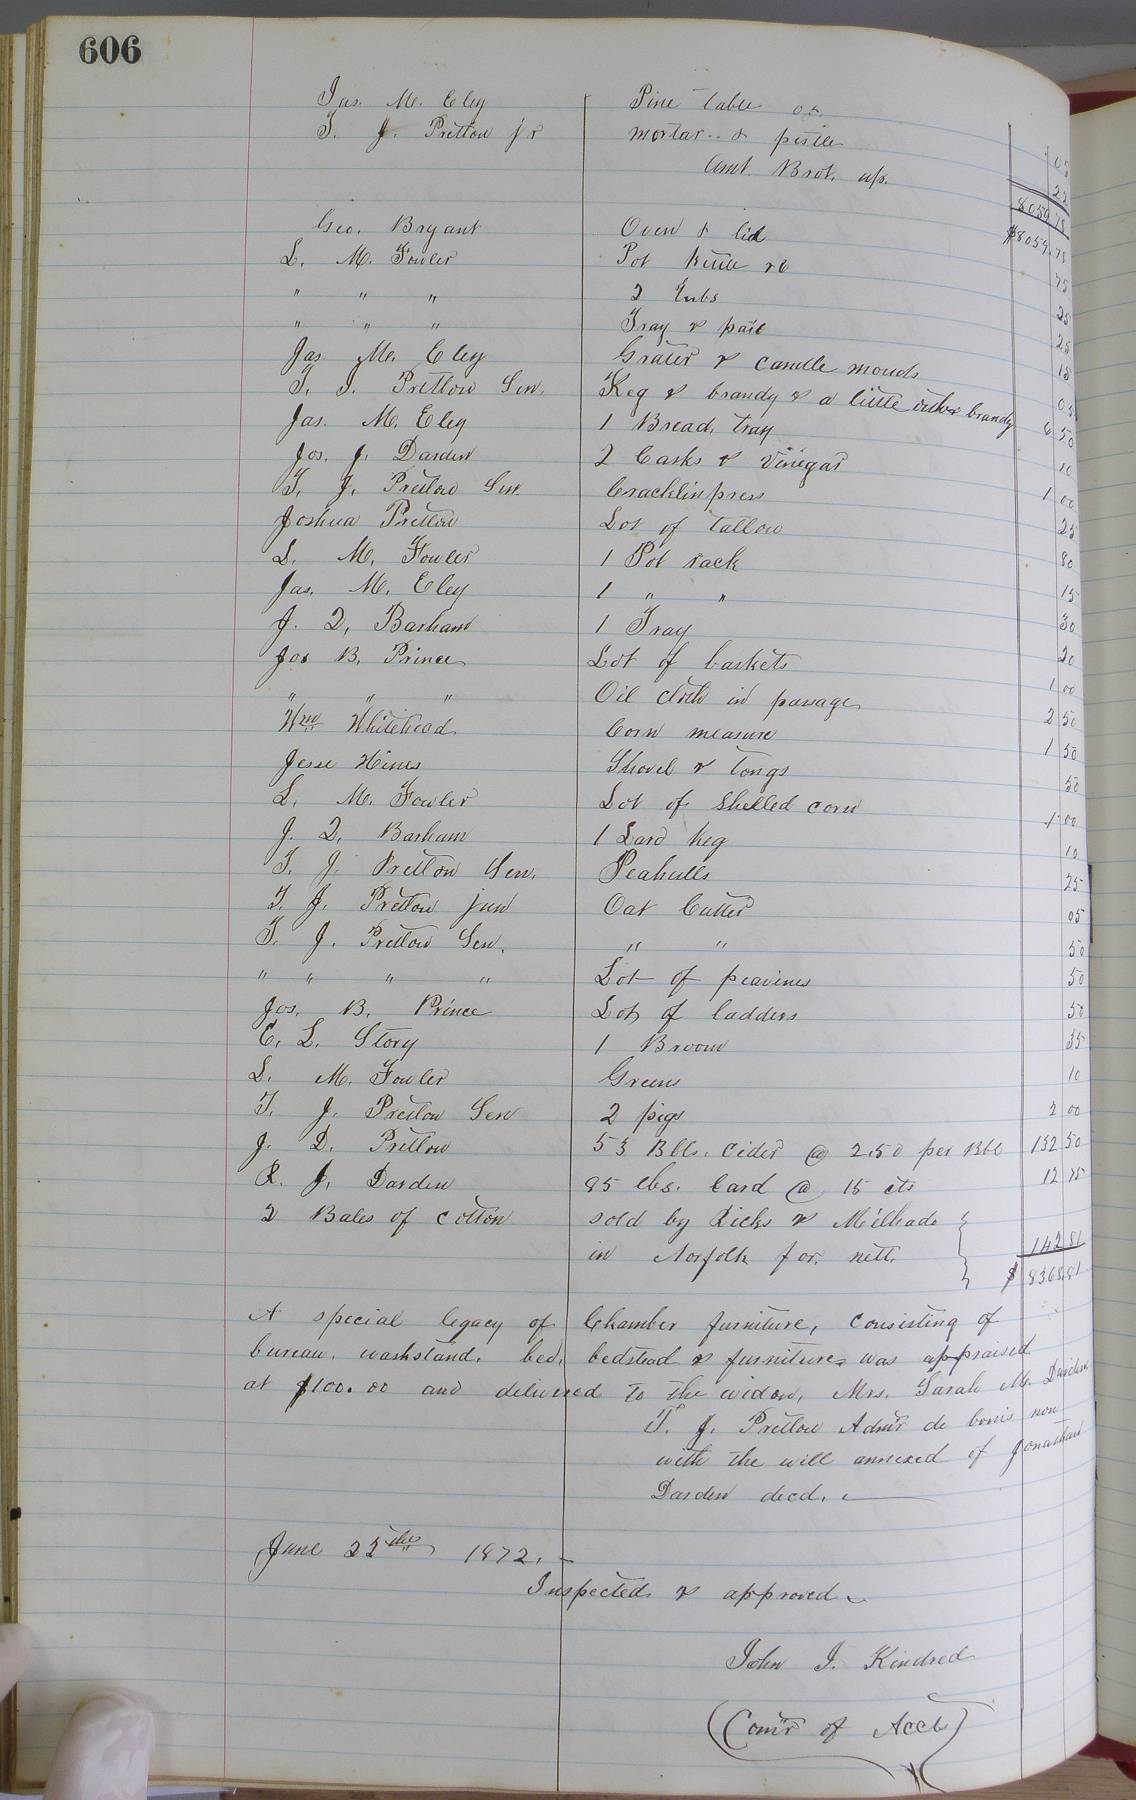 606
Jas. M. Eley Pine table 05
T. J. Pretlow jr mortar & pestle 22
Amt. Brot. up. 8059.78
$8059.78
Geo. Bryant Oven & lid 75
L. M. Fowler Pot kettle &c 25
" " " 2 Tubs 25
" " " Tray & pail 15
Jas. M. Eley Grater & candle moulds 05
T. J. Pretlow Sen. Keg & brandy & a little other brandy 6 50
Jas. M. Eley 1 Bread tray 10
Jos. J. Darden 2 Casks & vinegar 1 00
T. J. Pretlow Sen. Cracklin press 25
Joshua Pretlow Lot of tallow 80
L. M. Fowler 1 Pot rack 15
Jas. M. Eley 1 " " 30
J. Q. Barham 1 Tray 20
Jos B. Prince Lot of baskets 1 00
" " " Oil cloth in passage 2 50
Wm Whitehead Corn measure 1 50
Jesse Hines Shovel & tongs 50
L. M. Fowler Lot of Shelled corn 1 00
J. Q. Barham 1 Lard keg 10
T. J. Pretlow Sen. Peahulls 25
T. J. Pretlow jun Oat Cutter 05
T. J. Pretlow Sen. " " 50
" " " " Lot of peavines 50
Jos. B. Prince Lot of ladders 50
E. L. Story 1 Broom 35
L. M. Fowler Greens 10
T. J. Pretlow Sen 2 pigs 2 00
J. D. Pretlow 53 Bbls. Cider @ 2.50 per Bbl 132 50
R. J. Darden 85 lbs. Lard @ 15 cts 12 75
2 Bales of cotton sold by Ricks & Milhado
in Norfolk for nett 142 81
$ 8368.81
A special legacy of Chamber furniture, consisting of
bureau, washstand, bed, bedstead & furniture was appraised
at $100.00 and delivered to the widow, Mrs. Sarah M. Darden
T. J. Pretlow Admr de bonis non
with the will annexed of Jonathan
Darden decd.
June 22th 1872.
Inspected & approved
John J. Kindred
(Comr of Acct)